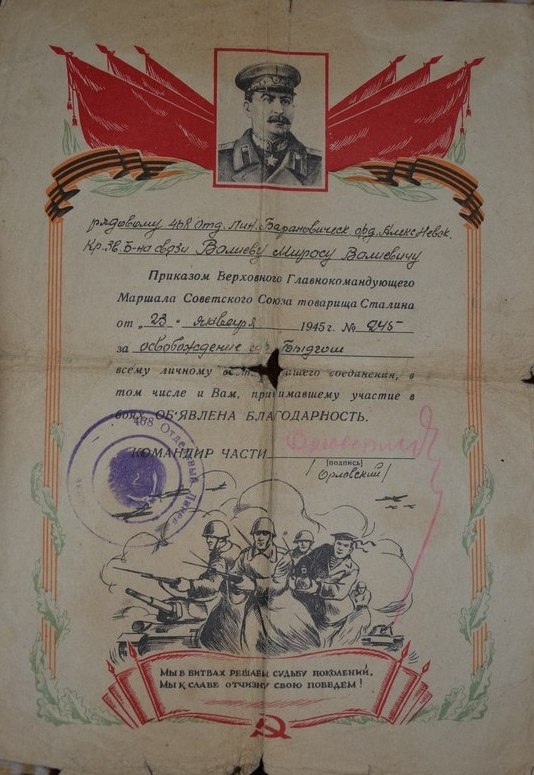 рядовому 408 отд. Лин. Барановическ. орд. Алекс Невск.
Кр. Зв. Б-на связи Валиеву Миросу Валиевичу
Приказом Верховного Главнокомандующего
Маршала Советского Союза товарища Сталина
от „23" января 1945 г. № 245
за освобождение гор. Быдгощ
всему личному нашего соединения, в
том числе и Вам, принимавшему участие в
боях, ОБ'ЯВЛЕНА БЛАГОДАРНОСТЬ.
408 Отдельный Линей
КОМАНДИР ЧАСТИ
[подпись]
/Орловский/
Мы в битвах решаем судьбу поколений,
Мы к славе отчизну свою поведем!